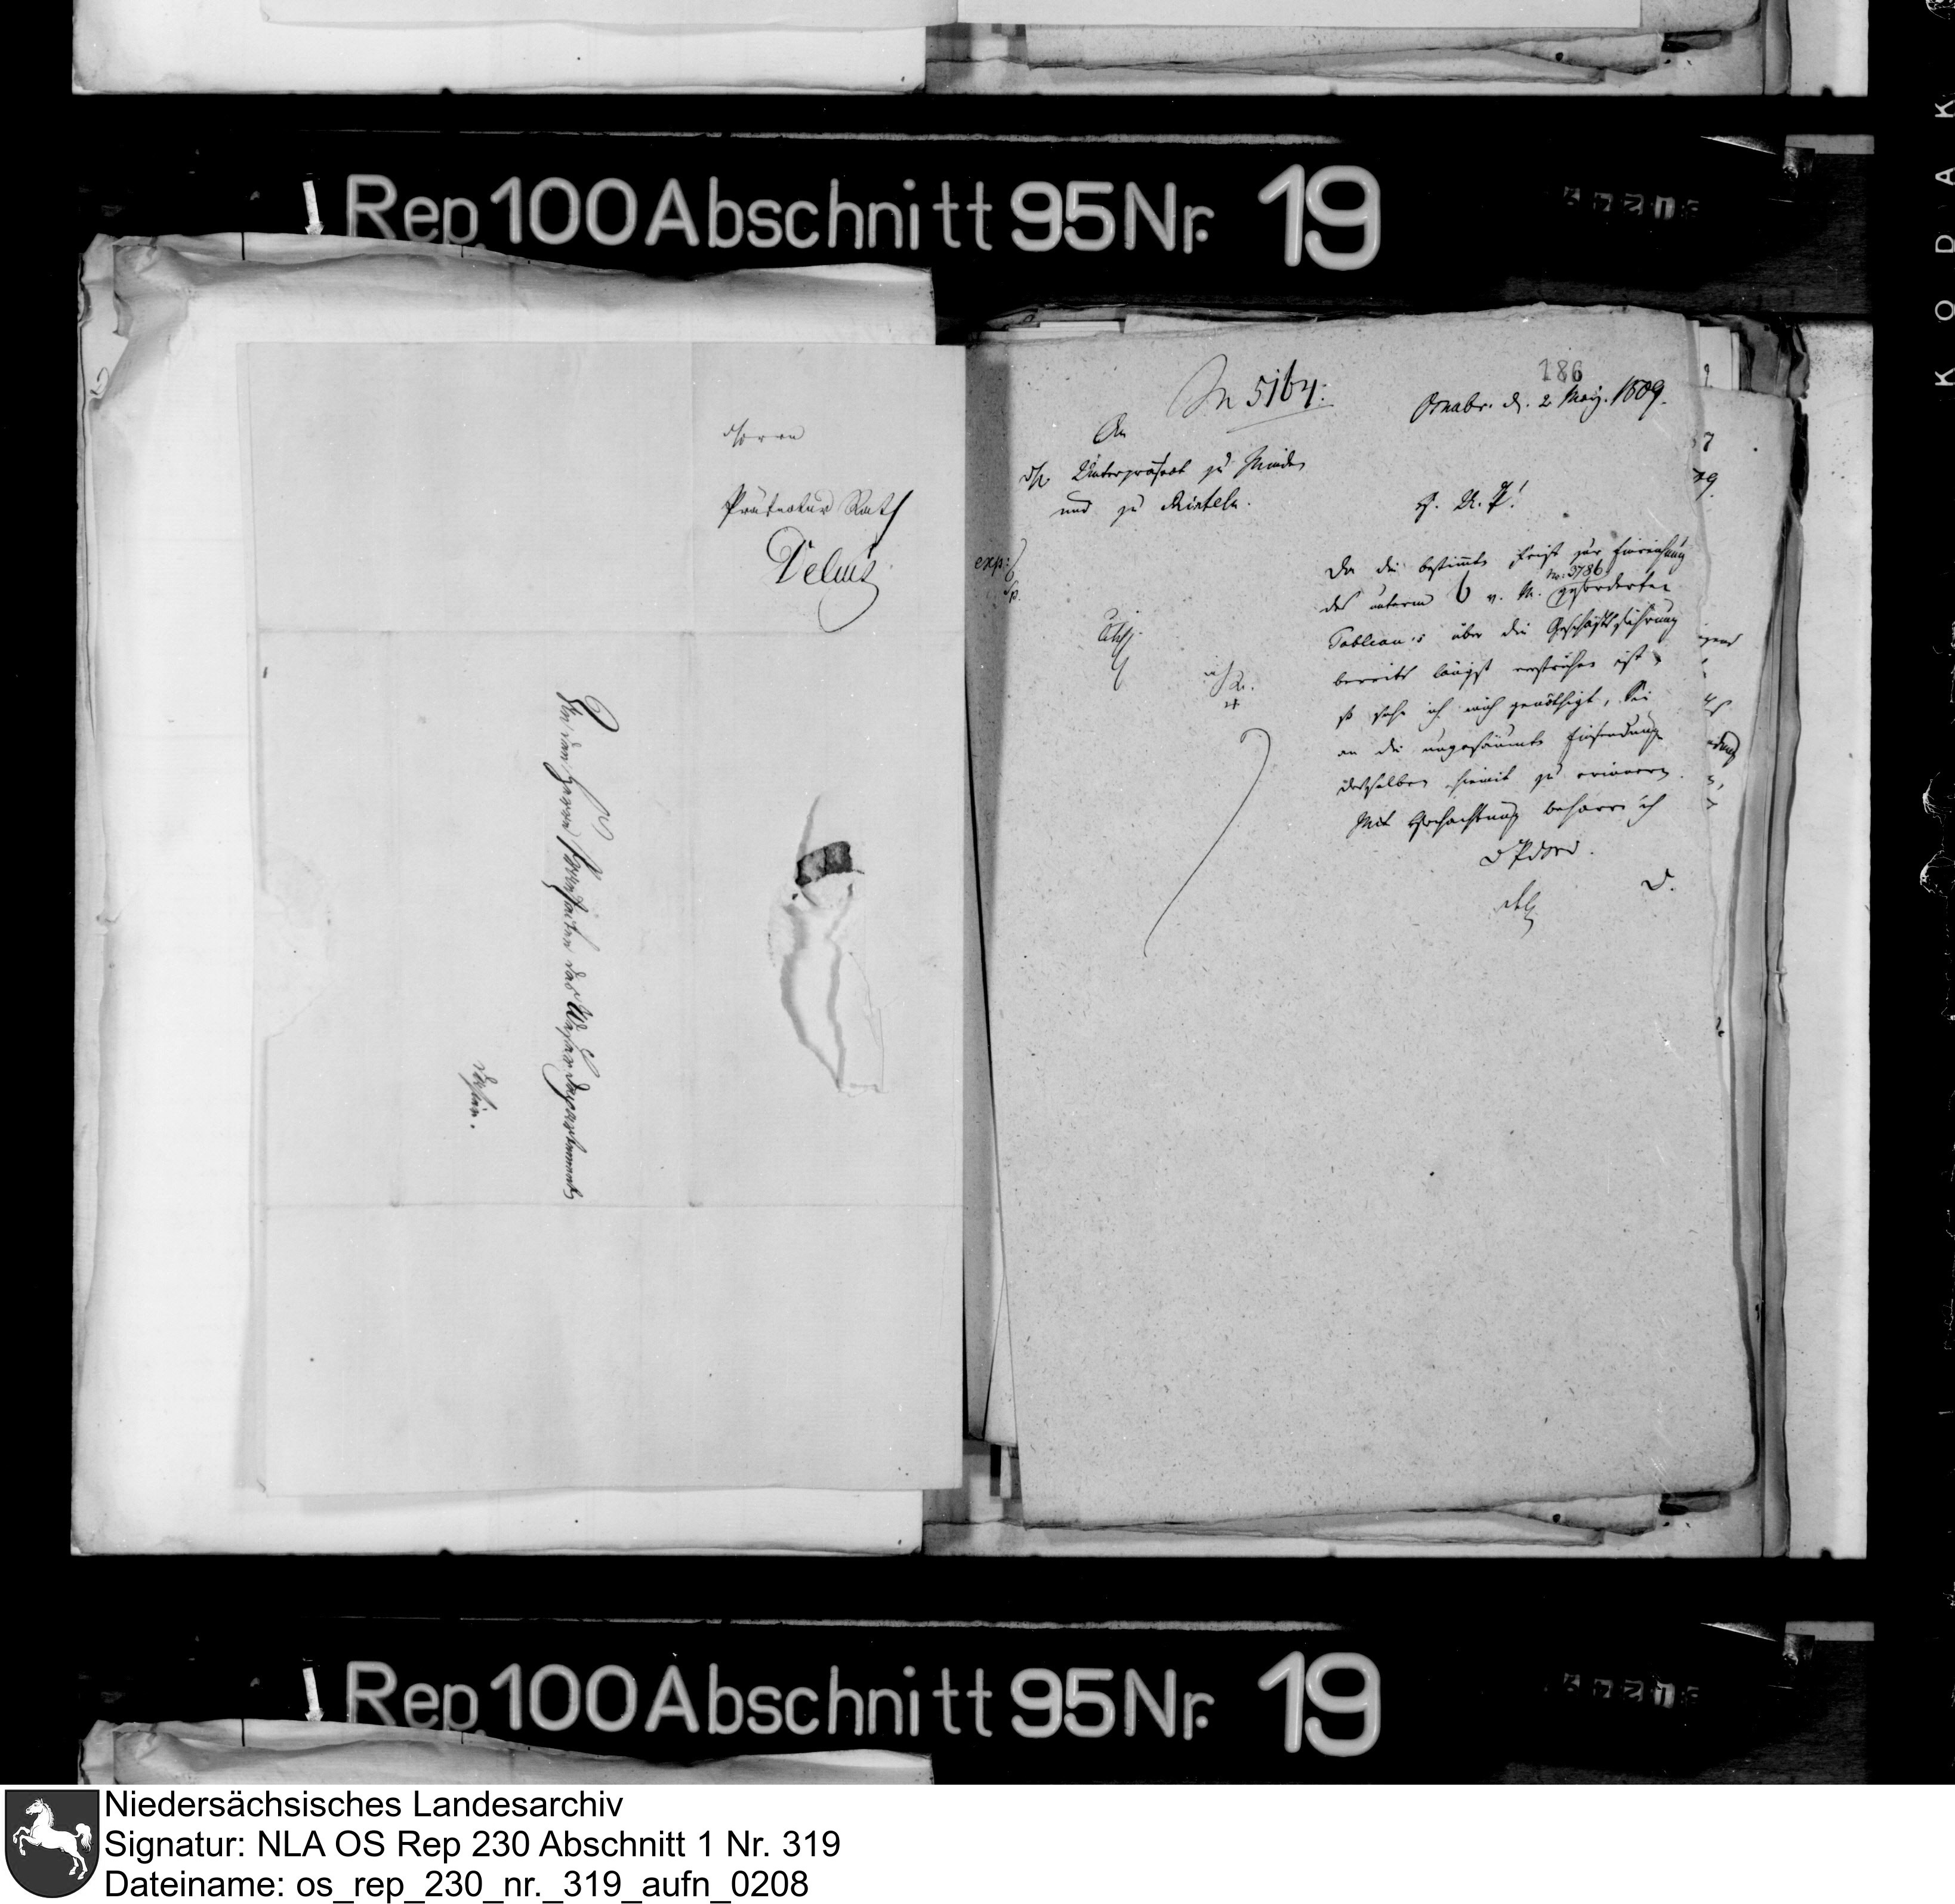 Rep. 100 Abschnitt 95 Nr. 19
Herrn
Präfectur Rath
Delius
An den Herrn Präfecten des Weser Departements
186
N 5164.
Osnabr. d. 2 May. 1809.
An
die Unterpräfect zu Minden
und zu Rinteln.
H. U. P!
exp:
Da die bestimmte Frist zur Einreichung
No. 3786
des unterm 6 v. M. geforderten
Tableau's über die Geschäftsführung
bereits längst verstrichen ist
so sehe ich mich genöthigt, Sie
an die ungesäumte Einsendung
desselben hiemit zu erinnern.
Mit Hochachtung beharre ich
D.
Rep. 100 Abschnitt 95 Nr. 19
KODAK
Niedersächsisches Landesarchiv
Signatur: NLA OS Rep 230 Abschnitt 1 Nr. 319
Dateiname: os_rep_230_nr._319_aufn_0208